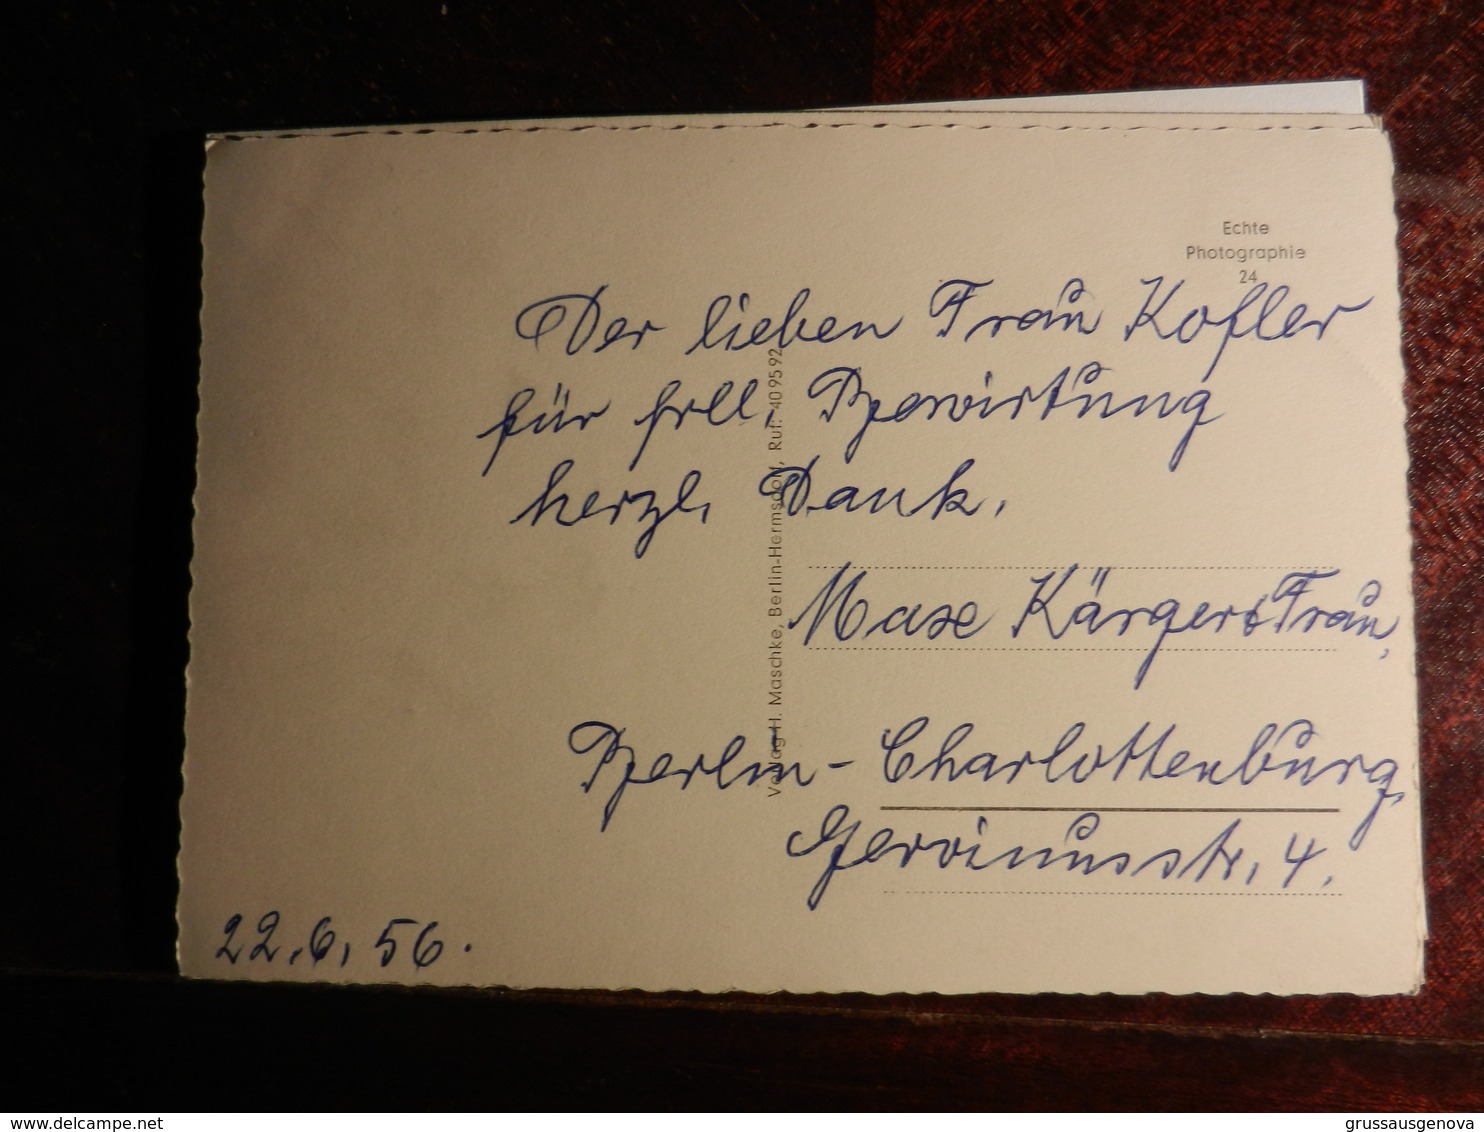 Echte
Photographie
24
Der lieben Frau Kofler
für frdl. Bewirtung
herzl. Dank.
Max Kärger & Frau,
Berlin-Charlottenburg,
Gervinusstr. 4.
22.6.56.
Verlag H. Maschke, Berlin-Hermsdorf, Ruf: 409592
www.delcampe.net
grussausgenova